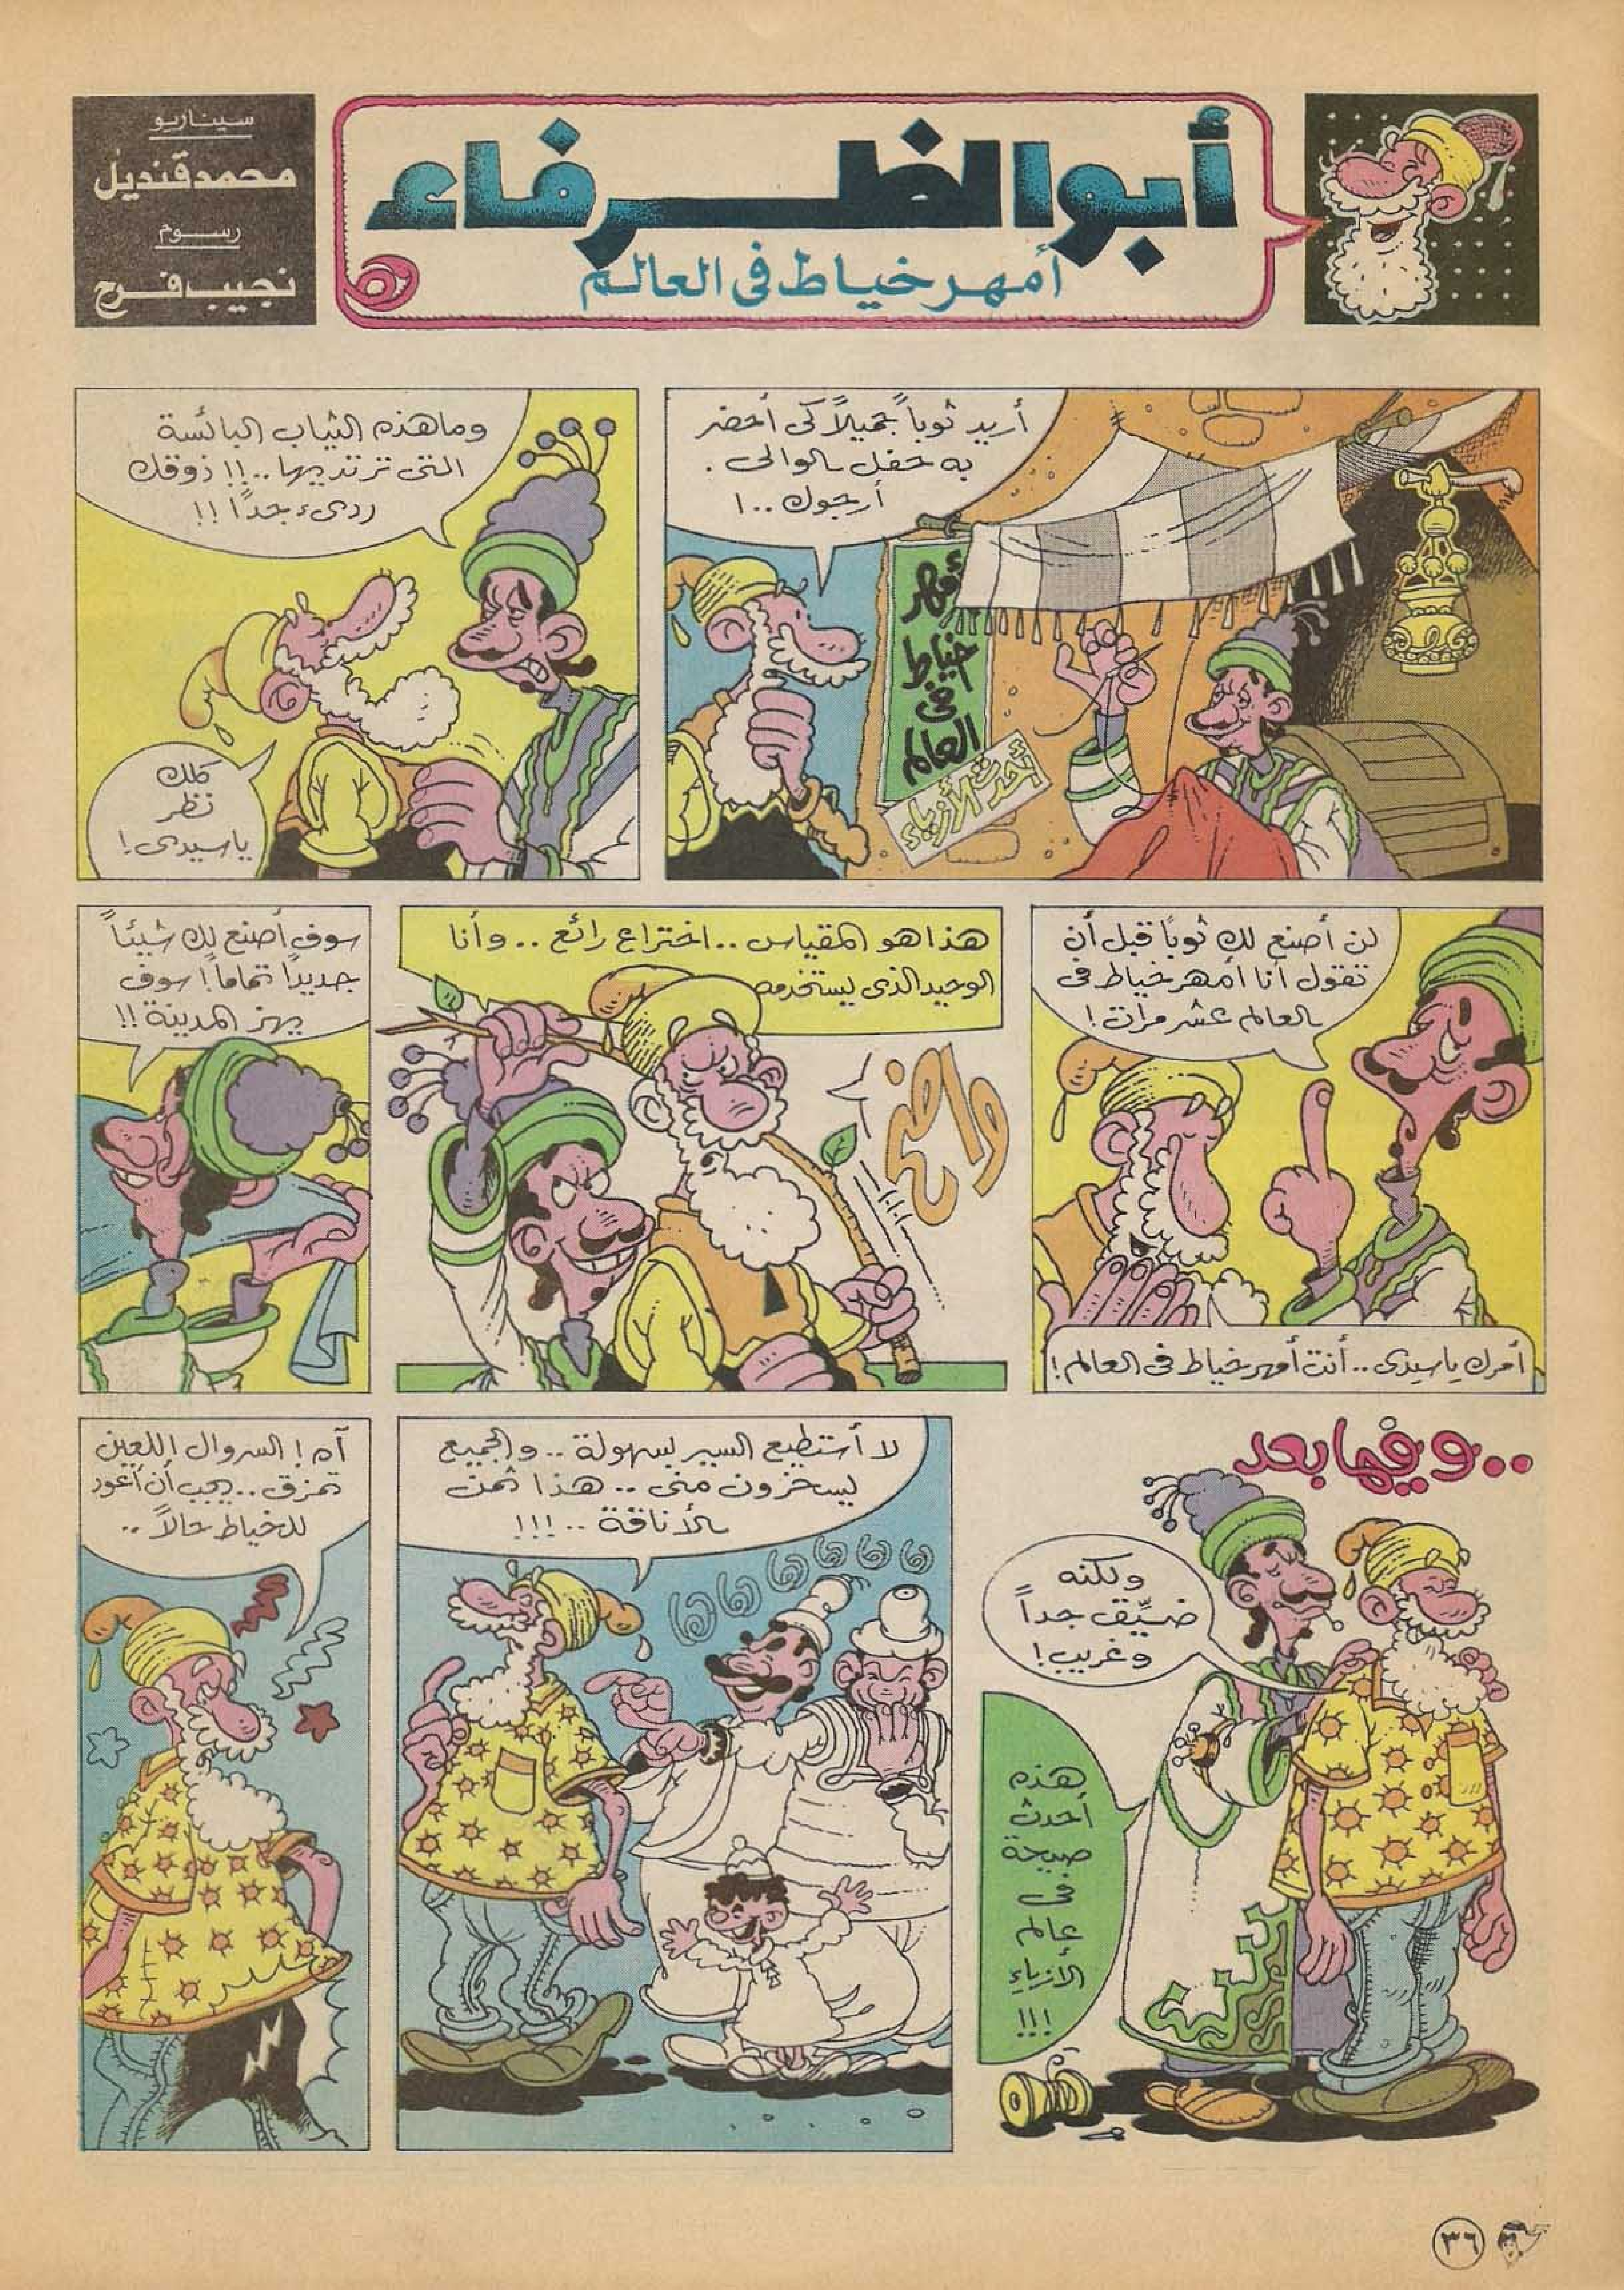 أبو الظرفاء
أمهر خياط فى العالم
سيناريو
محمد قنديل
رسوم
نجيب فرح
أريد ثوباً جميلاً كى أحضر
به حفل الوالى .
أرجوك ..!
أمهر
خياط
فى
العالم
أحدث الأزياء
وما هذه الثياب البائسة
التى ترتديها ..!! ذوقك
ردىء جداً !!
كلك
نظر
ياسيدى !
لن أصنع لك ثوباً قبل أن
تقول أنا أمهر خياط فى
العالم عشر مرات !
أمرك ياسيدى .. أنت أمهر خياط فى العالم !
هذا هو المقياس .. اختراع رائع .. وأنا
الوحيد الذى يستخدمه
واضح
سوف أصنع لك شيئاً
جديداً تماماً ! سوف
يهز المدينة !!
..وفيما بعد
ولكنه
ضيّق جداً
وغريب !
هذه
أحدث
صيحة
فى
عالم
الأزياء
!!!
لا أستطيع السير بسهولة .. والجميع
يسخرون منى .. هذا ثمن
الأناقة .. !!!
آه ! السروال اللعين
تمزق .. يجب أن أعود
للخياط حالاً ..
٣٦